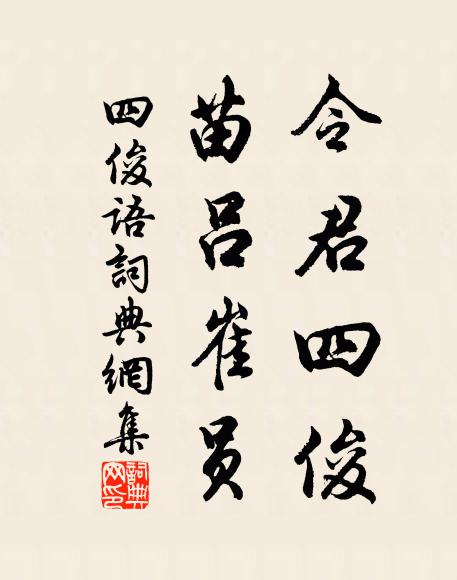 令君四俊
苗吕崔员
四俊语詞典網集
詞典网印